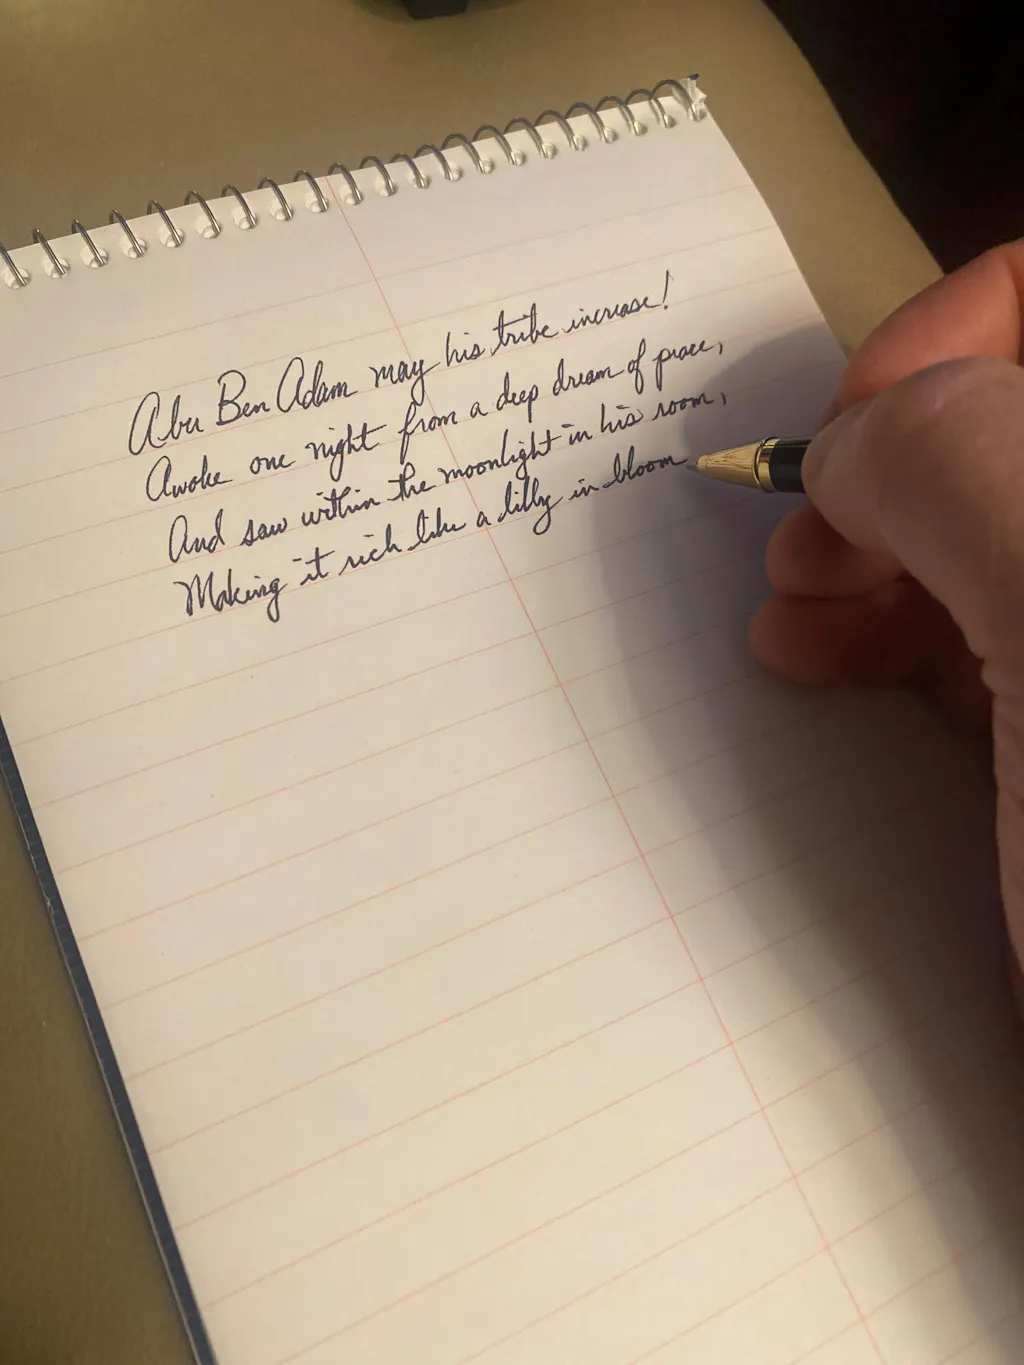 Abu Ben Adam may his tribe increase!
Awoke one night from a deep dream of peace,
And saw within the moonlight in his room,
Making it rich like a lilly in bloom